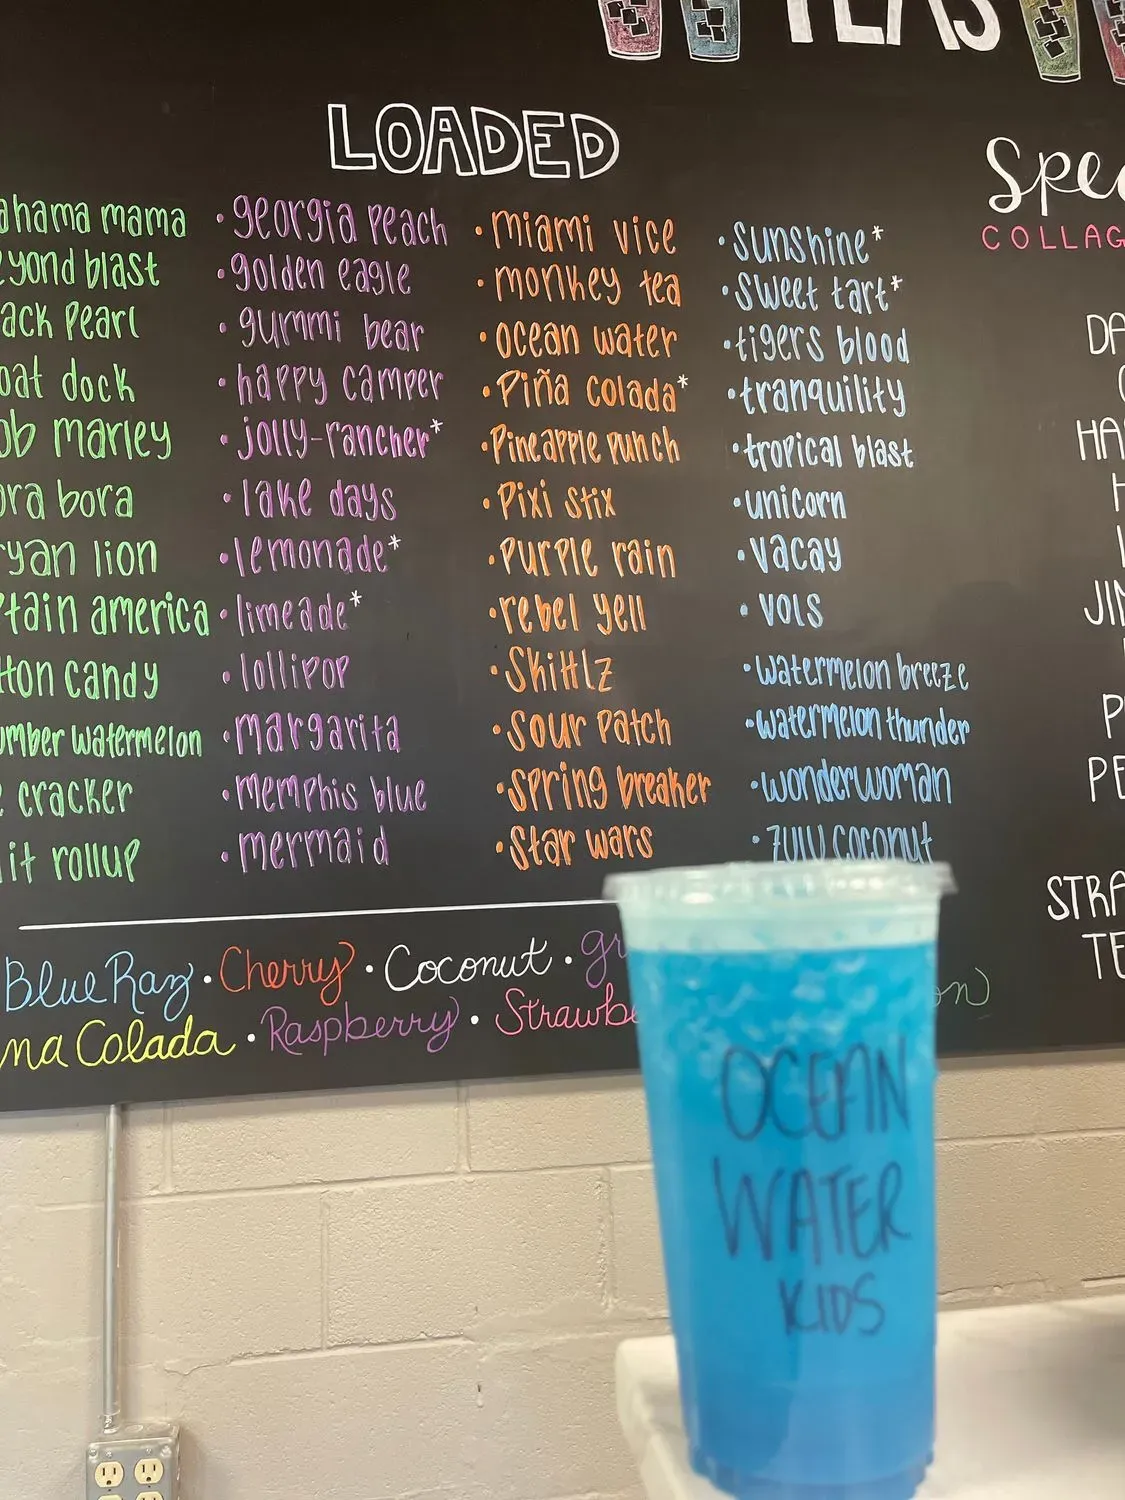 TEAS
LOADED
ahama mama
eyond blast
ack pearl
oat dock
ob marley
ora bora
ryan lion
ptain america
tton candy
umber watermelon
e cracker
it rollup
• georgia peach
• golden eagle
• gummi bear
• happy camper
• jolly-rancher*
• lake days
• lemonade*
• limeade*
• lollipop
• margarita
• memphis blue
• mermaid
• miami vice
• monkey tea
• ocean water
• Piña colada*
• Pineapple punch
• Pixi stix
• purple rain
• rebel yell
• Skittlz
• Sour Patch
• spring breaker
• Star wars
• sunshine*
• sweet tart*
• tigers blood
• tranquility
• tropical blast
• unicorn
• vacay
• VOLS
• watermelon breeze
• watermelon thunder
• wonderwoman
• zulu coconut
Spec
COLLAG
DA
HA
H
JIN
P
PE
STRA
TE
Blue Raz • Cherry • Coconut • gr on)
na Colada • Raspberry • Strawbe
OCEAN
WATER
KIDS